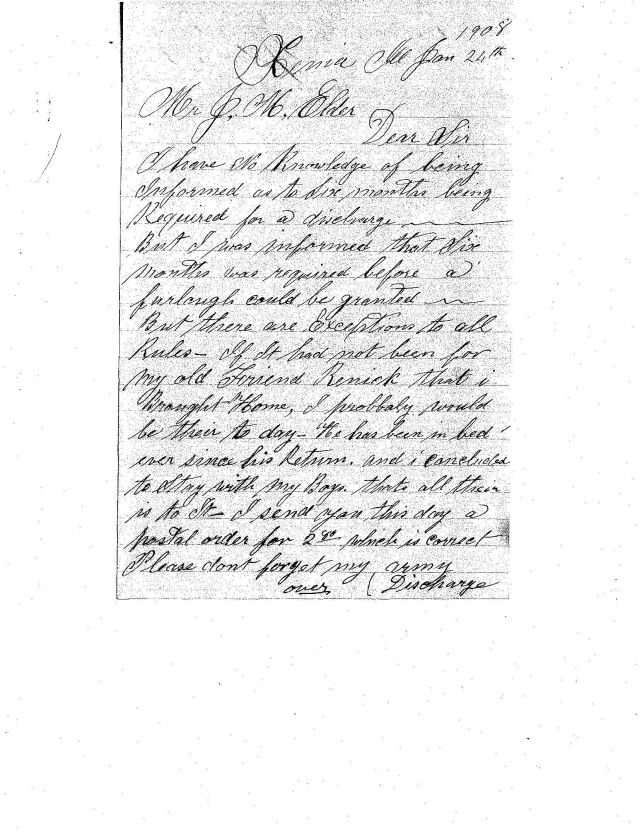 1908
Xenia Ill Jan 24th
Mr J. M. Elder
Dear Sir
I have No Knowledge of being
Informed as to Six months being
Required for a discharge
But I was informed that Six
months was required before a
furlough could be granted
But there are Exceptions to all
Rules - If It had not been for
my old Friend Renick that i
Brought Home, I probbaly would
be their to day - He has been in bed
ever since his Return. and i concluded
to Stay with my Boys. thats all their
is to It - I send you this day a
postal order for which is correct
Please dont forget my army
over ( Discharge